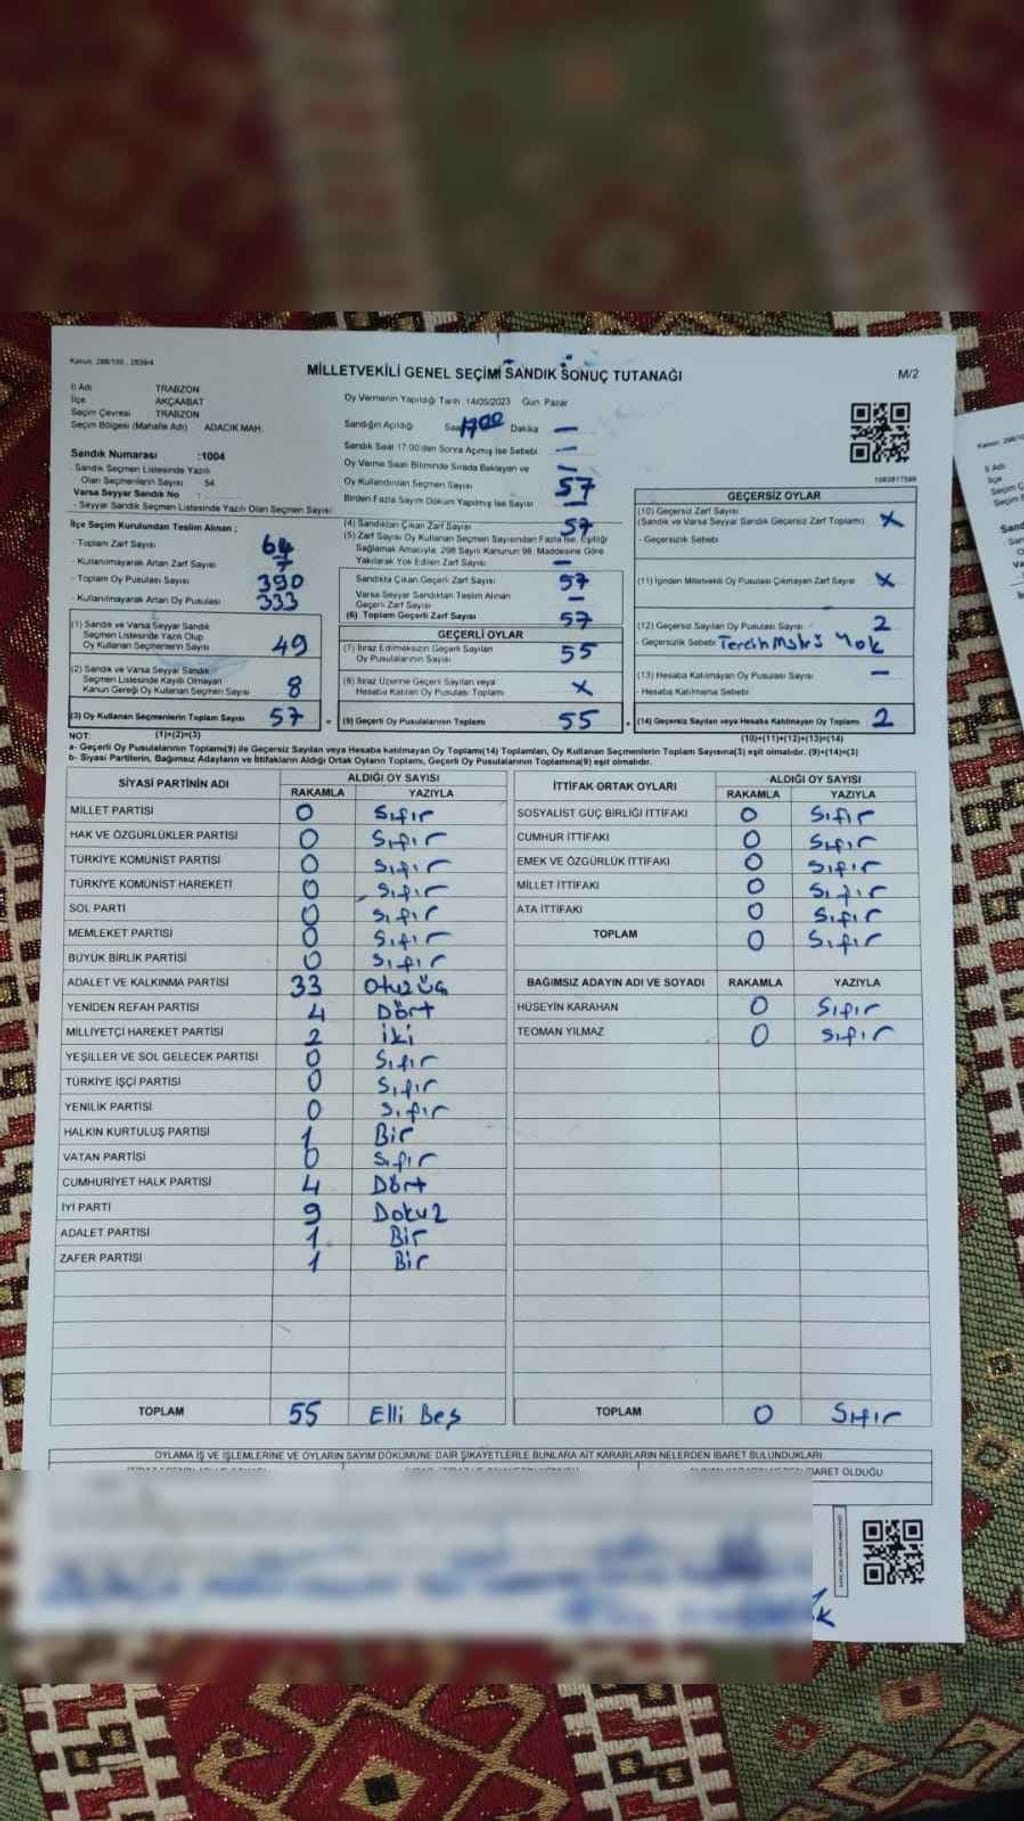 MİLLETVEKİLİ GENEL SEÇİMİ SANDIK SONUÇ TUTANAĞI
M/2
İl Adı TRABZON
İlçe AKÇAABAT
Seçim Çevresi TRABZON
Seçim Bölgesi (Mahalle Adı) ADACIK MAH.
Sandık Numarası :1004
- Sandık Seçmen Listesinde Yazılı
Olan Seçmenlerin Sayısı 54
Varsa Seyyar Sandık No :
- Seyyar Sandık Seçmen Listesinde Yazılı Olan Seçmen Sayısı
İlçe Seçim Kurulundan Teslim Alınan ;
- Toplam Zarf Sayısı 64
- Kullanılmayarak Artan Zarf Sayısı 7
- Toplam Oy Pusulası Sayısı 390
- Kullanılmayarak Artan Oy Pusulası 333
(1) Sandık ve Varsa Seyyar Sandık
Seçmen Listesinde Yazılı Olup
Oy Kullanan Seçmenlerin Sayısı 49
(2) Sandık ve Varsa Seyyar Sandık
Seçmen Listesinde Kayıtlı Olmayan
Kanun Gereği Oy Kullanan Seçmen Sayısı 8
(3) Oy Kullanan Seçmenlerin Toplam Sayısı 57
(1)+(2)=(3)
Oy Vermenin Yapıldığı Tarih :14/05/2023 Gün: Pazar
Sandığın Açıldığı Saat 17:00 Dakika —
Sandık Saat 17:00'den Sonra Açılmış İse Sebebi —
Oy Verme Saati Bitiminde Sırada Bekleyen ve
Oy Kullandırılan Seçmen Sayısı —
Birden Fazla Sayım Döküm Yapılmış İse Sayısı 57
(4) Sandıktan Çıkan Zarf Sayısı 57
(5) Zarf Sayısı Oy Kullanan Seçmen Sayısından Fazla İse, Eşitliği
Sağlamak Amacıyla, 298 Sayılı Kanunun 98. Maddesine Göre
Yakılarak Yok Edilen Zarf Sayısı —
Sandıkta Çıkan Geçerli Zarf Sayısı 57
Varsa Seyyar Sandıktan Teslim Alınan
Geçerli Zarf Sayısı —
(6) Toplam Geçerli Zarf Sayısı 57
GEÇERLİ OYLAR
(7) İtiraz Edilmeksizin Geçerli Sayılan
Oy Pusulalarının Sayısı 55
(8) İtiraz Üzerine Geçerli Sayılan veya
Hesaba Katılan Oy Pusulası Toplamı X
(9) Geçerli Oy Pusulalarının Toplamı 55
GEÇERSİZ OYLAR
(10) Geçersiz Zarf Sayısı
(Sandık ve Varsa Seyyar Sandık Geçersiz Zarf Toplamı) X
- Geçersizlik Sebebi
(11) İçinden Milletvekili Oy Pusulası Çıkmayan Zarf Sayısı X
(12) Geçersiz Sayılan Oy Pusulası Sayısı 2
- Geçersizlik Sebebi Tercih Mührü Yok
(13) Hesaba Katılmayan Oy Pusulası Sayısı —
- Hesaba Katılmama Sebebi
(14) Geçersiz Sayılan veya Hesaba Katılmayan Oy Toplamı 2
(10)+(11)+(12)+(13)=(14)
NOT:
a- Geçerli Oy Pusulalarının Toplamı(9) ile Geçersiz Sayılan veya Hesaba katılmayan Oy Toplamı(14) Toplamları, Oy Kullanan Seçmenlerin Toplam Sayısına(3) eşit olmalıdır. (9)+(14)=(3)
b- Siyasi Partilerin, Bağımsız Adayların ve İttifakların Aldığı Ortak Oyların Toplamı, Geçerli Oy Pusulalarının Toplamına(9) eşit olmalıdır.
SİYASİ PARTİNİN ADI ALDIĞI OY SAYISI
RAKAMLA YAZIYLA
MİLLET PARTİSİ 0 Sıfır
HAK VE ÖZGÜRLÜKLER PARTİSİ 0 Sıfır
TÜRKİYE KOMÜNİST PARTİSİ 0 Sıfır
TÜRKİYE KOMÜNİST HAREKETİ 0 Sıfır
SOL PARTİ 0 Sıfır
MEMLEKET PARTİSİ 0 Sıfır
BÜYÜK BİRLİK PARTİSİ 0 Sıfır
ADALET VE KALKINMA PARTİSİ 33 Otuzüç
YENİDEN REFAH PARTİSİ 4 Dört
MİLLİYETÇİ HAREKET PARTİSİ 2 İki
YEŞİLLER VE SOL GELECEK PARTİSİ 0 Sıfır
TÜRKİYE İŞÇİ PARTİSİ 0 Sıfır
YENİLİK PARTİSİ 0 Sıfır
HALKIN KURTULUŞ PARTİSİ 1 Bir
VATAN PARTİSİ 0 Sıfır
CUMHURİYET HALK PARTİSİ 4 Dört
İYİ PARTİ 9 Dokuz
ADALET PARTİSİ 1 Bir
ZAFER PARTİSİ 1 Bir
TOPLAM 55 Elli Beş
İTTİFAK ORTAK OYLARI ALDIĞI OY SAYISI
RAKAMLA YAZIYLA
SOSYALİST GÜÇ BİRLİĞİ İTTİFAKI 0 Sıfır
CUMHUR İTTİFAKI 0 Sıfır
EMEK VE ÖZGÜRLÜK İTTİFAKI 0 Sıfır
MİLLET İTTİFAKI 0 Sıfır
ATA İTTİFAKI 0 Sıfır
TOPLAM 0 Sıfır
BAĞIMSIZ ADAYIN ADI VE SOYADI RAKAMLA YAZIYLA
HÜSEYİN KARAHAN 0 Sıfır
TEOMAN YILMAZ 0 Sıfır
TOPLAM 0 Sıfır
OYLAMA İŞ VE İŞLEMLERİNE VE OYLARIN SAYIM DÖKÜMÜNE DAİR ŞİKAYETLERLE BUNLARA AİT KARARLARIN NELERDEN İBARET BULUNDUKLARI